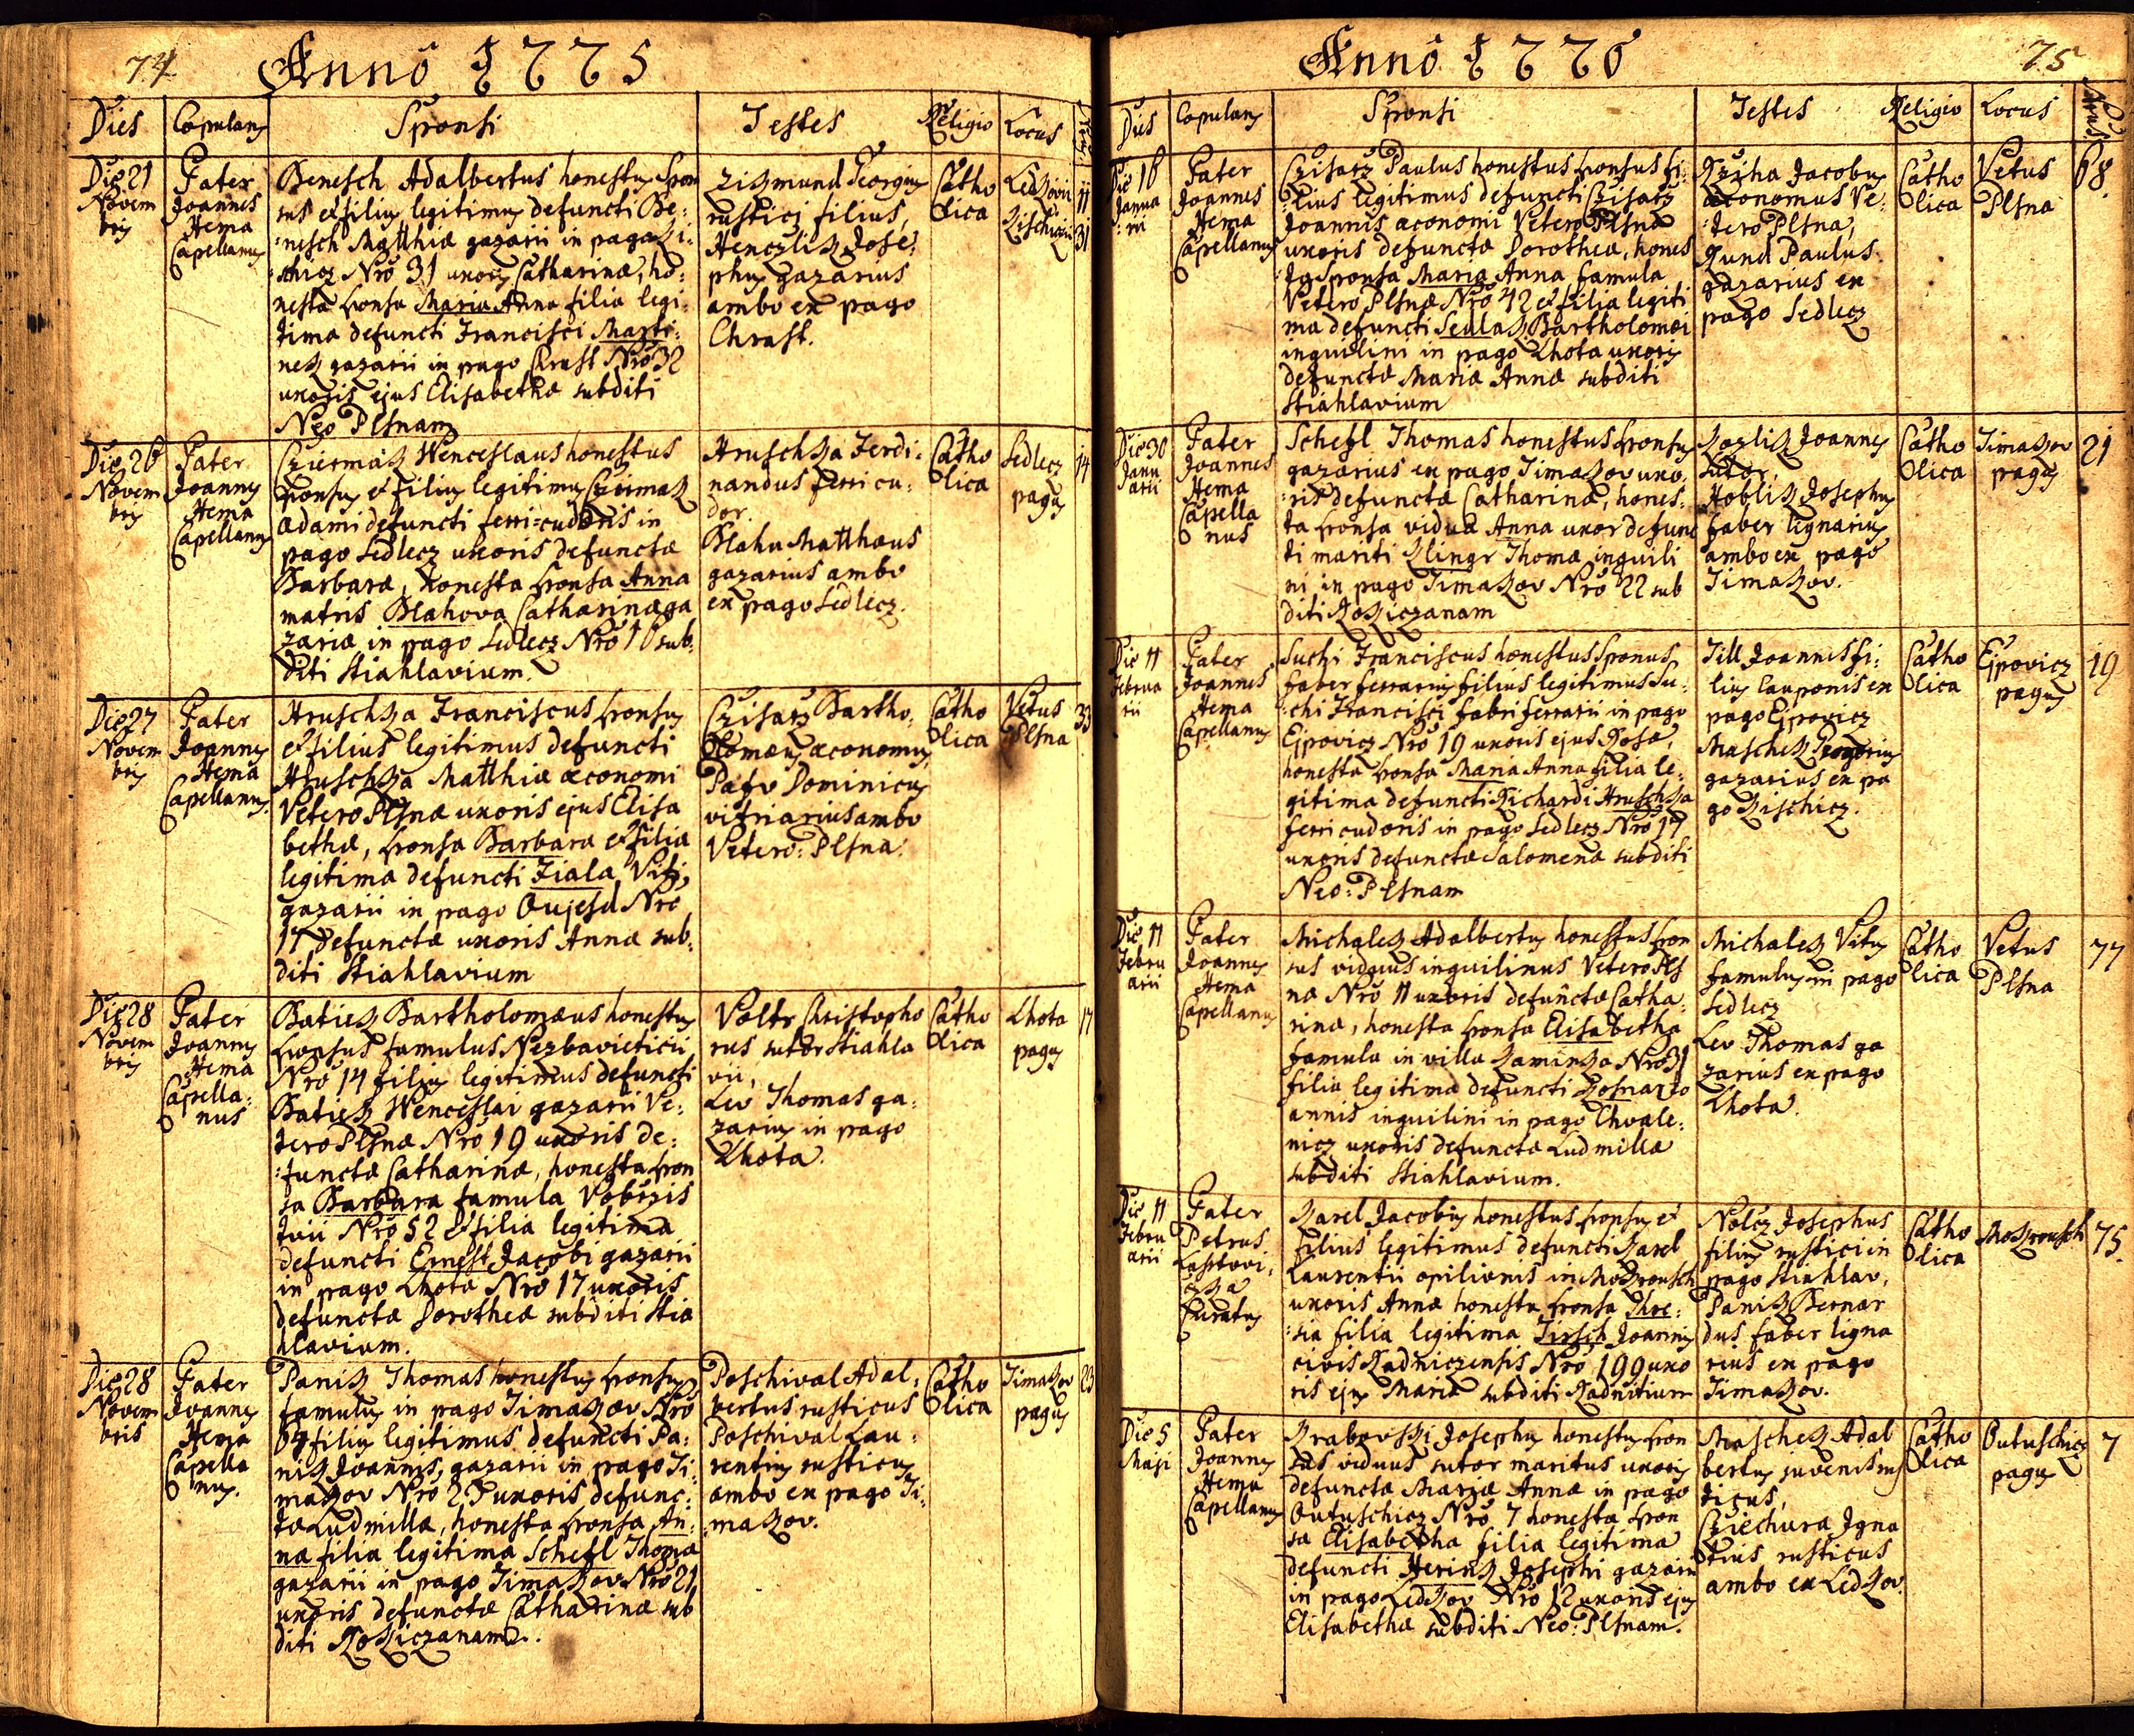 74
Anno 1775
Dies Copulans Sponsi Testes Religio Locus
Die 21
Novem
bris
Pater
Joannes
Hema
Capellanus
Benesch Adalbertus honestus Spon
sus et filius legitimus defuncti Be:
:nesch Matthiæ gazarii in pago Ki:
schicz Nro 31 uxoris Catharinæ, ho:
nesta sponsa Maria Anna filia legi:
tima defuncti Francisci Marti:
nek gazarii in pago Chrast Nro 32
uxoris ejus Elisabethæ subditi
Neo Plsnam
Zikmund Georgius
rustici filius,
Henczlik Jose:
phus gazarius
ambo ex pago
Chrast.
Catho
lica
11
31
Die 26
Novem
bris
Pater
Joannes
Hema
Capellanus
Cziermak Wenceslaus honestus
sponsus et filius legitimus Cziermak
Adami defuncti ferri=cudoris in
pago Sedlecz uxoris defunctæ
Barbaræ, honesta sponsa Anna
matris Blahova Catharinæ ga
zariæ in pago Sedlecz Nro 16 sub:
diti Stiahlavium.
Hruschka Ferdi:
nandus ferri cu:
dor.
Blahu Matthæus
gazarius ambo
ex pago Sedlecz.
Catho
lica
Sedlecz
pagus
14
Die 27
Novem
bris
Pater
Joannes
Hema
Capellanus.
Hruschka Franciscus sponsus
et filius legitimus defuncti
Hruschka Matthiæ æconomi
Vetero Plsnæ uxoris ejus Elisa
bethæ, sponsa Barbara et filia
legitima defuncti Fiala Viti,
gazarii in pago Oujesd Nro
17 defunctæ uxoris Annæ sub:
diti Stiahlavium
Czisarz Bartho:
lomæus æconomus,
Pafv Dominicus
vitriarius ambo
Vetero: Plsna.
Catho
lica
Vetus
Plsna
33
Die 28
Novem
bris
Pater
Joannes
Hema
Capella:
nus
Batiek Bartholomæus honestus
sponsus famulus Nezbavieticii
Nro 14 filius legitimus defuncti
Batiek Wenceslai gazarii Ve:
tero Plsnæ Nro 19 uxoris de:
:functæ Catharinæ, honesta spon
sa Barbara famula Vobrzis
tvii Nro 52 et filia legitima
defuncti Ernest Jacobi gazarii
in pago Lhota Nro 17 uxoris
defunctæ Dorotheæ subditi Stia
hlavium.
Voltr Christopho
rus sutor Stiahla
vii,
Lev Thomas ga:
zarius in pago
Lhota.
Catho
lica
Lhota
pagus
17
Die 28
Novem
bris
Pater
Joannes
Hema
Capella
nus.
Panik Thomas honestus sponsus
famulus in pago Timakov Nro
filius legitimus defuncti Pa:
nik Joannis, gazarii in pago Ti:
makov Nro uxoris defunc:
tæ Ludmillæ, honesta sponsa An:
na filia legitima Schefl Thomæ
gazarii in pago Timakov Nro 21
uxoris defunctæ Catharinæ sub
diti Rokiczanam.
Poschival Adal:
bertus rusticus
Poschival Lau:
rentius rusticus
ambo ex pago Ti:
:makov.
Catho
lica
Timakov
pagus
23
Anno 1776
75
Dies Copulans Sponsi Testes Religio Locus
Die 16
Janua
:rii
Pater
Joannes
Hema
Capellanus
Czisarz Paulus honestus sponsus fi:
:lius legitimus defuncti Czisarz
Joannis æconomi Vetero Plsnæ
uxoris defunctæ Dorotheæ, hones
ta Sponsa Maria Anna famula
Vetero Plsnæ Nro 42 et filia legiti
ma defuncti Sedlak Bartholomæi
inquilini in pago Lhota uxoris
defunctæ Mariæ Annæ subditi
Stiahlavium
Krziha Jacobus
æconomus Ve:
:tero Plsna,
Kund Paulus
gazarius ex
pago Sedlecz
Catho
lica
Vetus
Plsna
68.
Die 30
Janu
arii
Pater
Joannes
Hema
Capella
nus
Schefl Thomas honestus sponsus
gazarius ex pago Timakov uxo:
:ris defunctæ Catharinæ, hones:
ta sponsa vidua Anna uxor defunc
ti mariti Klingr Thomæ inquili
ni in pago Timakov Nro 22 sub
diti Rokiczanam
Kozlik Joannes
sutor,
Hoblik Josephus
faber lignarius
ambo ex pago
Timakov.
Catho
lica
Timakov
pagus
21
Die 11
Februa
rii
Pater
Joannes
Hema
Capellanus
Suchi Franciscus honestus Sponsus
faber ferrarius filius legitimus Su:
:chi Francisci fabri ferrarii in pago
Ejpovicz Nro 19 uxoris ejus Rosæ,
honesta sponsa Maria Anna filia le:
gitima defuncti Richardi Hruschka
ferri cudoris in pago Sedlecz Nro 17
uxoris defunctæ Salomenæ subditi
Neo: Plsnam
Till Joannes fi:
lius cauponis ex
pago Ejpovicz
Maschek
gazarius ex pa
go Kischicz.
Catho
lica
Ejpovicz
pagus
19
Die 11
Febru
arii
Pater
Joannes
Hema
Capellanus
Michalek Adalbertus honestus spon
sus viduus inquilinus Vetero Pls
næ Nro 11 uxoris defunctæ Catha
rinæ, honesta sponsa Elisabetha
famula in villa Kaminka Nro 31
filia legitima defuncti Kosnar Jo
annis inquilini in pago Chvale:
nicz uxoris defunctæ Ludmillæ
subditi Stiahlavium.
Michalek Vitus
famulus in pago
Sedlecz
Lev Thomas ga
zarius ex pago
Lhota.
Catho
lica
Vetus
Plsna
77
Die 11
Febru
arii
Pater
Petrus
Lasstovi:
czka
Curatus
Karel Jacobus honestus sponsus et
filius legitimus defuncti Karel
Laurentii opilionis in Mokrousch
uxoris Annæ honesta sponsa The:
:sia filia legitima Tirsch Joannis
civis Radniczensis Nro 199 uxo
ris ejus Mariæ subditi Radnitium
Nolcz Josephus
filius rustici in
pago Stiahlav,
Panik Bernar
dus faber ligna
rius ex pago
Timakov.
Catho
lica
Mokrousch
75.
Die 5
Maji
Pater
Joannes
Hema
Capellanus
Krabovski Josephus honestus spon
sus viduus sutor maritus uxoris
defunctæ Mariæ Annæ in pago
Butuschicz Nro 7 honesta spon
sa Elisabetha filia legitima
defuncti Herink Josephi gazarii
in pago Ledkov Nro 12 uxoris ejus
Elisabethæ subditi Neo: Plsnam.
Maschek Adal
bertus juvenis rus
ticus,
Cziechura Igna
tius rusticus
ambo ex Ledkov.
Catho
lica
Butuschicz
pagus
7